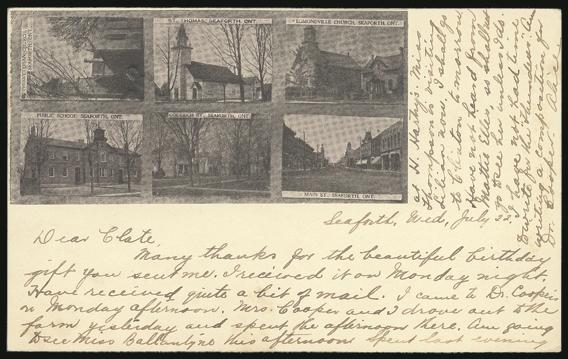 ST. THOMAS, SEAFORTH, ONT.
EGMONDVILLE CHURCH, SEAFORTH, ONT.
PUBLIC SCHOOL, SEAFORTH, ONT.
GODERICH ST., SEAFORTH, ONT.
MAIN ST., SEAFORTH, ONT.
Seaforth, Wed, July 22nd
Dear Clate,
Many thanks for the beautiful birthday
gift you sent me. I received it on Monday night
Have received quite a bit of mail. I came to Dr. Cooper's
on Monday afternoon. Mrs. Cooper and I drove out to the
farm yesterday and spent the afternoon there. Am going
to see Miss Ballantyne this afternoon Spent last evening
at H. Hartry's. Miss
Thompson is visiting
Lilian now. I shall go
to Clinton to-morrow
Have not heard from
Mattie Ellis, so shall not
go to see her unless I do
I have not had time
to write for the "Thunderer." Am
writing a composition for
Dr. Cooper. Alice.